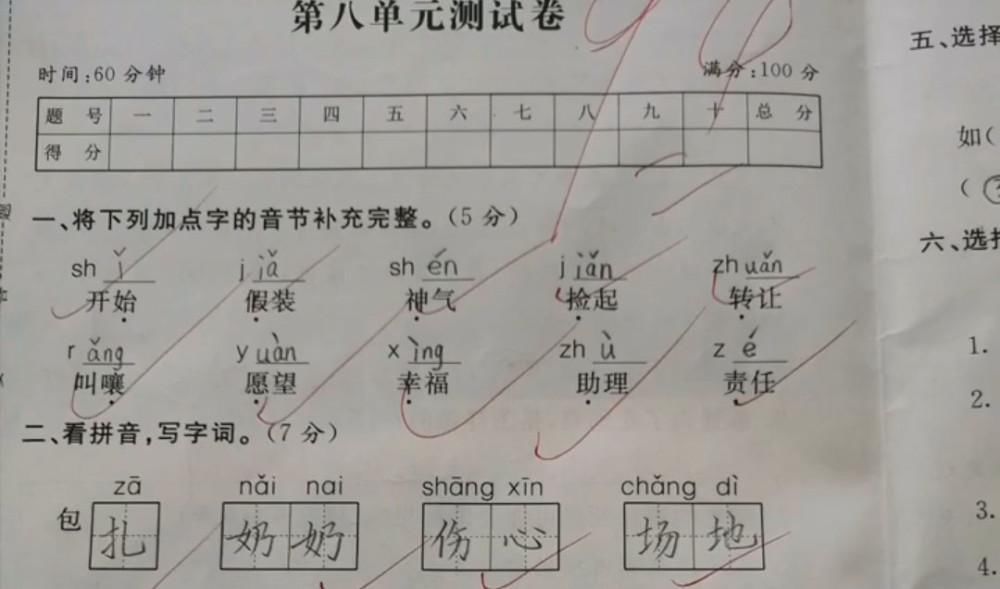 第八单元测试卷
98
时间:60分钟 满分:100分
题号 一 二 三 四 五 六 七 八 九 十 总分
得分
一、将下列加点字的音节补充完整。(5分)
sh ǐ j iǎ sh én j iǎn zh uǎn
开始 假装 神气 捡起 转让
r ǎng y uàn x ìng zh ù z é
叫嚷 愿望 幸福 助理 责任
二、看拼音,写字词。(7分)
zā nǎi nai shāng xīn chǎng dì
包 扎 奶奶 伤心 场地
五、选择
如(
(
六、选择
1.
2.
3.
4.